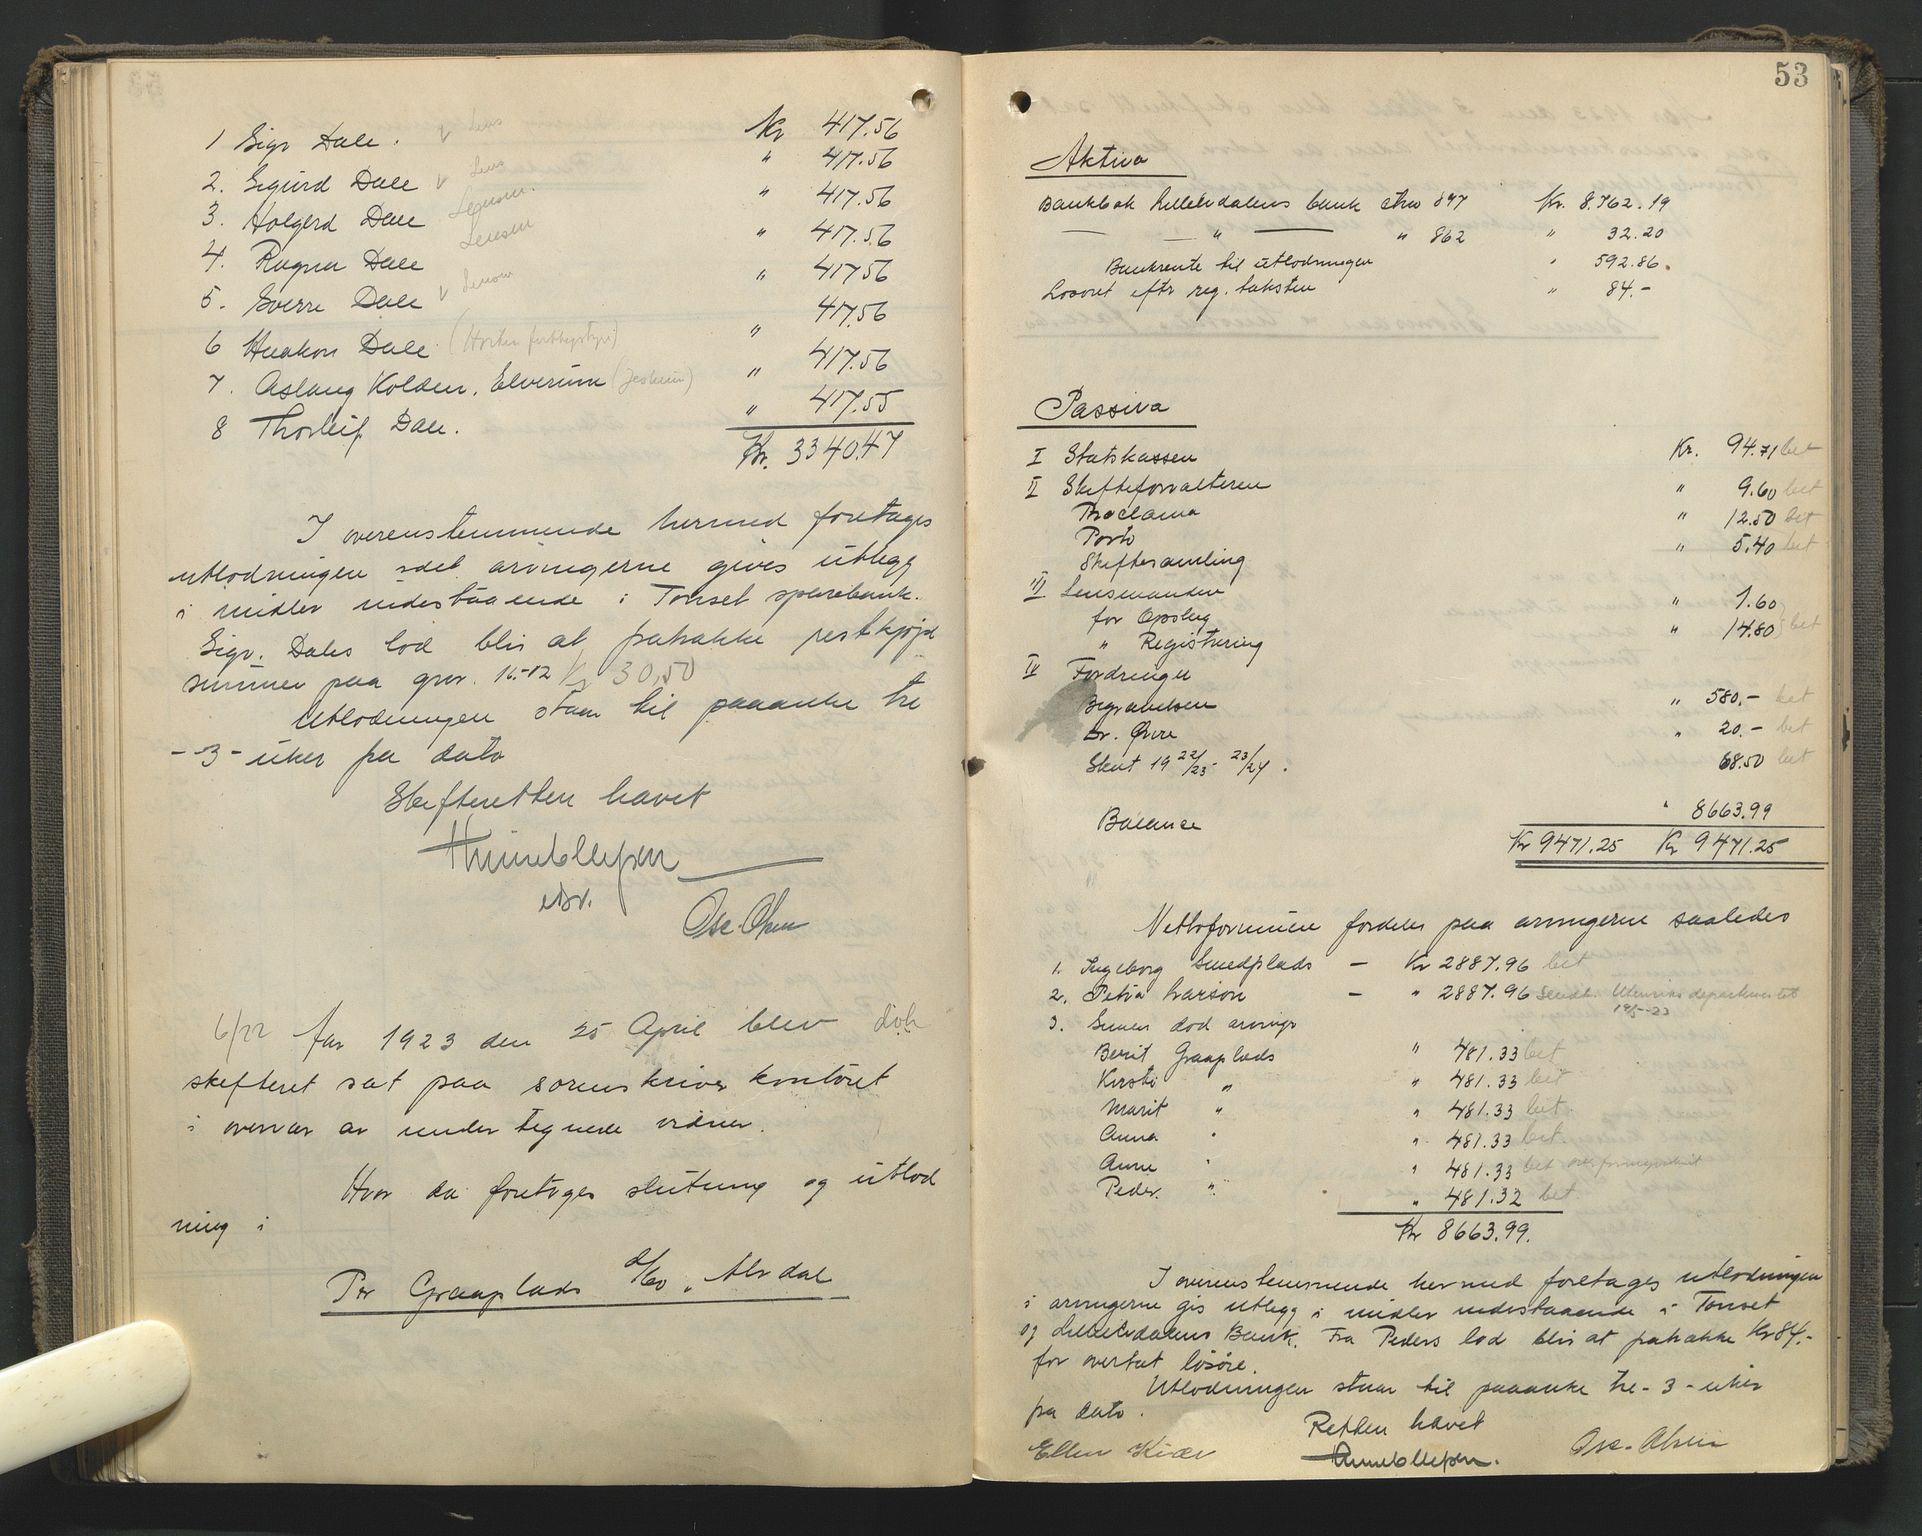 1 Sigr Dale. Kr 417.56
2. Sigurd Dale " 417.56
3. Holgerd Dale " 417.56
4. Ragna Dale " 417.56
5. Sverre Dale " 417.56
6 Haakon Dale 417.56
7. Aslaug Kolden, Elverum " 417.56
8 Thorleif Dale. " 417.55
Kr. 3340.47
I overenstemmende hermed foretages
utlodningen idet arvingerne gives utlegg
i midler indestaaende i Tonset sparebank.
Sigr. Dales lod blir at fratrække restkjøpe
summen paa grav. Kr 30,50
Utlodningen staar til paaanke tre
-3- uker fra dato
Skifteretten hævet
Osc. Olsen
6/22 Aar 1923 den 25 April blev
skifteret sat paa sorenskriver kontoret
i overvær av undertegnede vidner.
Hvor da foretoges slutning og utlod
ning i
Per Graaplads d/bo, Alvdal
53
Aktiva
Bankbok Lilleelvdalens bank ctro 847 Kr. 8.762.19
" " 862 " 32.20
Bankrente til utlodningen " 592.86.
Løsøret eftr reg. taksten " 84.-
Passiva
I Statskassen Kr. 94.71 bet
II Skifteforvalteren " 9.60 bet
Proclama " 12.50 bet
Porto " 5.40 bet
Skiftesamling
III Lensmanden
for Opslag " 1.60
" Registrering " 14.80 bet
IV Fordringer
Begravelsen " 580.- bet
Dr. Øvre " 20.- bet
Skat 19 22/23 - 23/24. 68.50 bet
Balance " 8663.99
Kr 9471.25 Kr 9471.25
Nettoformuen fordeles paa arvingerne saaledes
1. Ingeborg Smedplads - Kr 2887.96 bet
2. Petra Larson - " 2887.96 sendt Utenriksdepartementet
3. Simen død arvinger
Berit Graaplads " 481.33 bet
Kirsti " " 481.33 bet
Marit " " 481.33 bet.
Anna " " 481.33 bet.
Anne " " 481.33 bet
Peder " " 481.32 bet
Kr 8663.99.
I overenstemmende hermed foretages utlodningen
i arvingerne gis utlegg i midler indestaaende i Tonset
og Lilleelvdalens Bank. Fra Peders lod blir at fratrække Kr 84.-
for overtat løsøre.
Utlodningen staar til paaanke tre -3- uker
fra dato.
Retten hævet
Ellen Kiær
Osc. Olsen